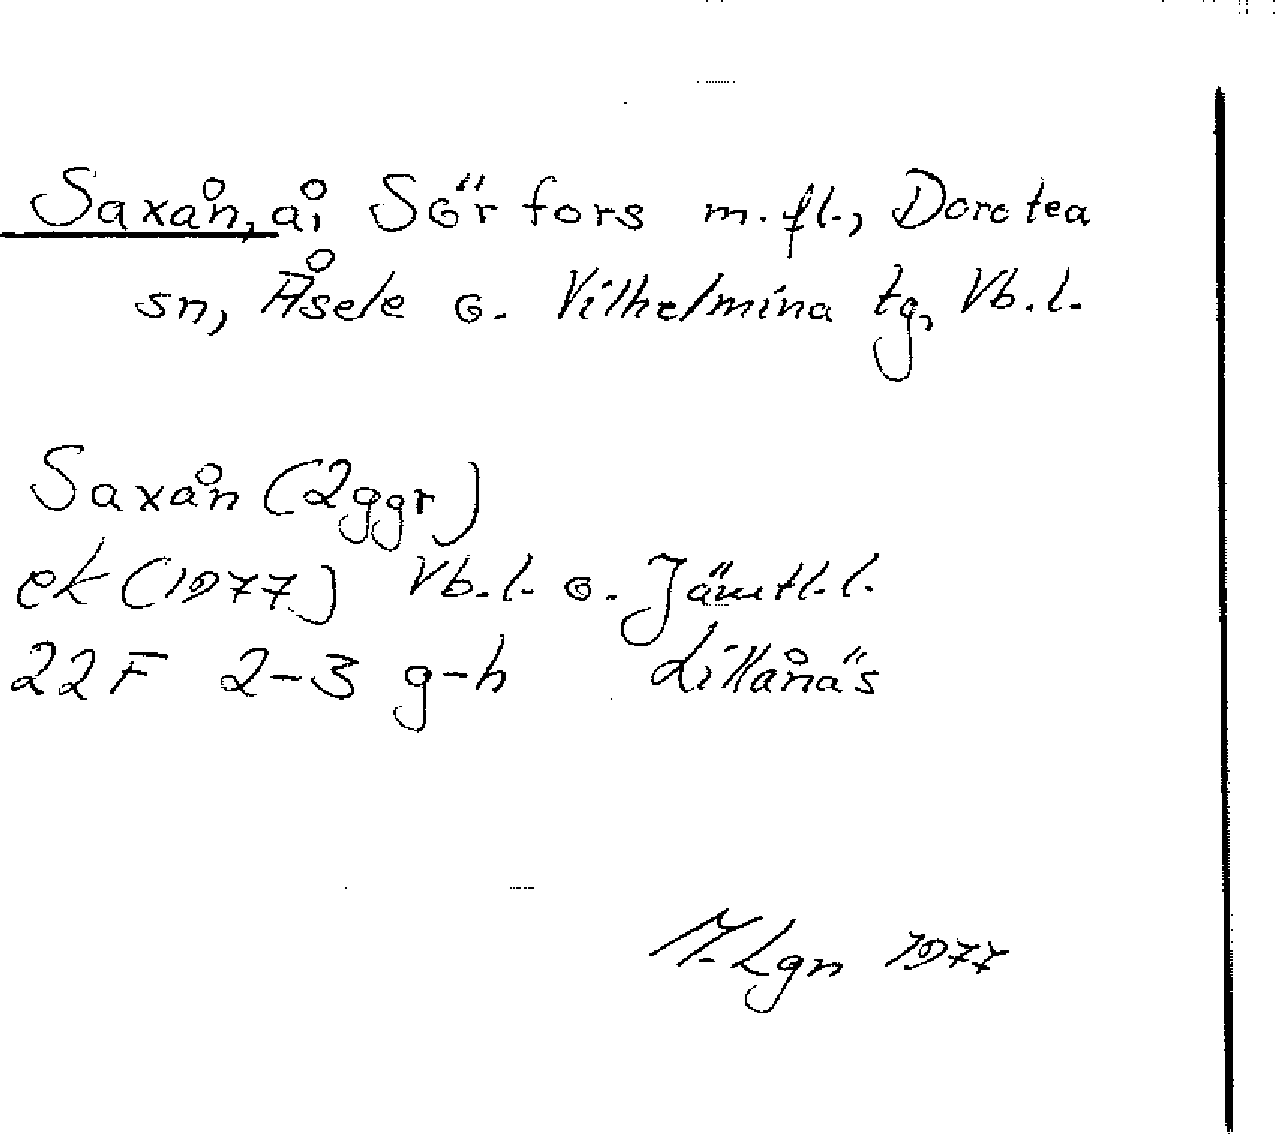 Saxån, å i Sörfors m.fl., Dorotea
sn, Åsele o. Vilhelmina tg, Vb.l.
Saxån (2ggr)
ek (1977) Vb.l. o. Jämtl.l.
22F 2-3 g-h Lillånäs
M. Lgn 1977